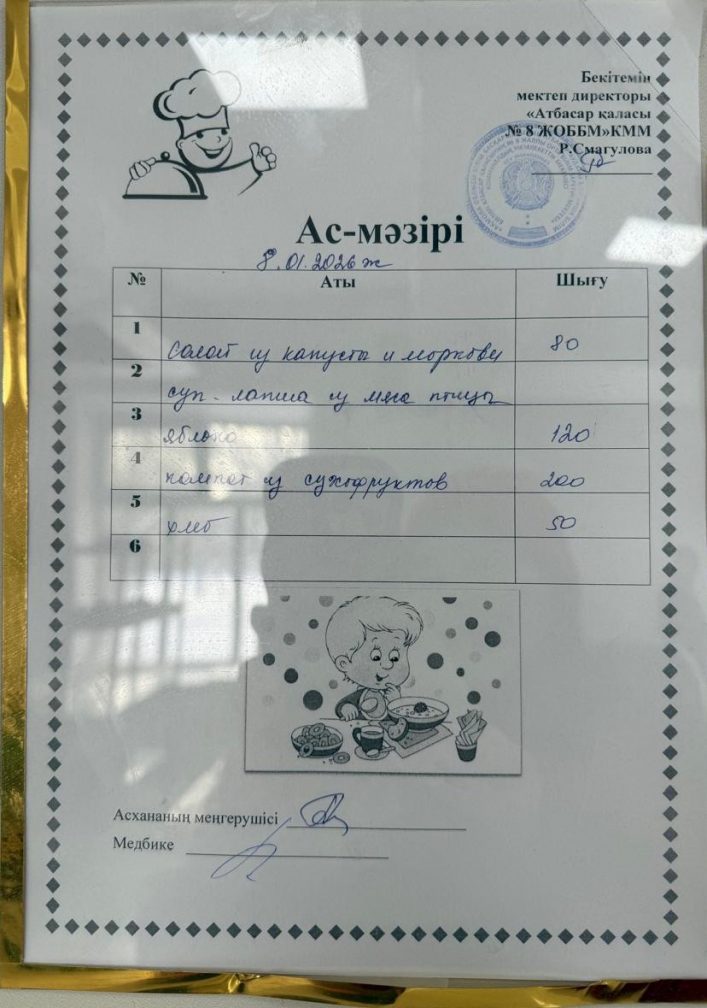 Бекітемін
мектеп директоры
«Атбасар қаласы
№ 8 ЖОББМ»КММ
Р.Смагулова
Ас-мәзірі
8.01.2026 ж
№ Аты Шығу
1 Салат из капусты и моркови 80
2 суп-лапша из мяса птицы
3 яблоко 120
4 компот из сухофруктов 200
5 хлеб 50
6
Асхананың меңгерушісі
Медбике